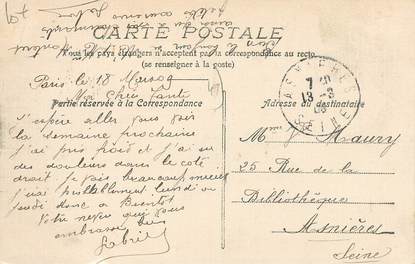 CARTE POSTALE
Tous les pays étrangers n'acceptent pas la correspondance au recto.
(se renseigner à la poste)
Paris le 18 Mars 09
Ma Chère Tante
Partie réservée à la Correspondance
J'espère aller vous voir
la semaine prochaine
j'ai pris froid et j'ai eu
des douleurs dans le coté
droit je vais beaucoup mieux
j'irai probablement lundi ou
jeudi donc à Bientôt
Votre neveu qui vous
embrasse bien
Gabriel
ASNIERES
SEINE
Adresse du destinataire
Mme Maury
25 Rue de la
Bibliothèque
Asnières
Seine